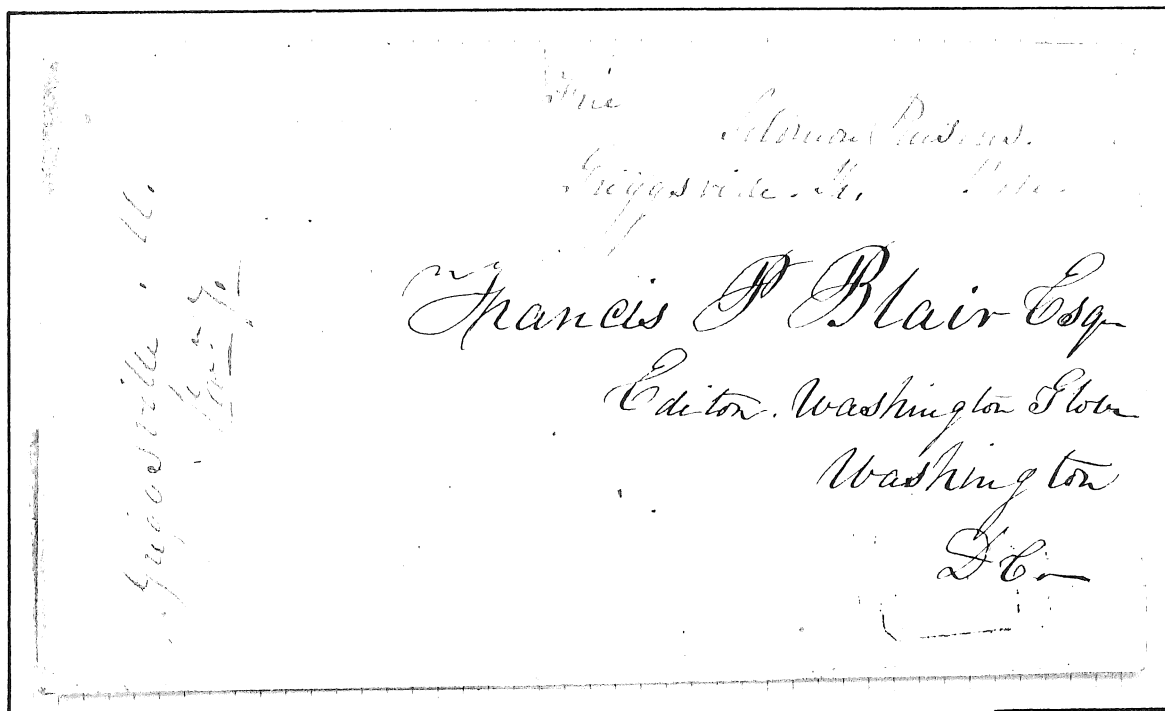 Free
Solomon Parsons.
Griggsville. Ill. P.M.
Francis P Blair Esqr
Editor. Washington Globe
Washington
D C
Griggsville. Ill.